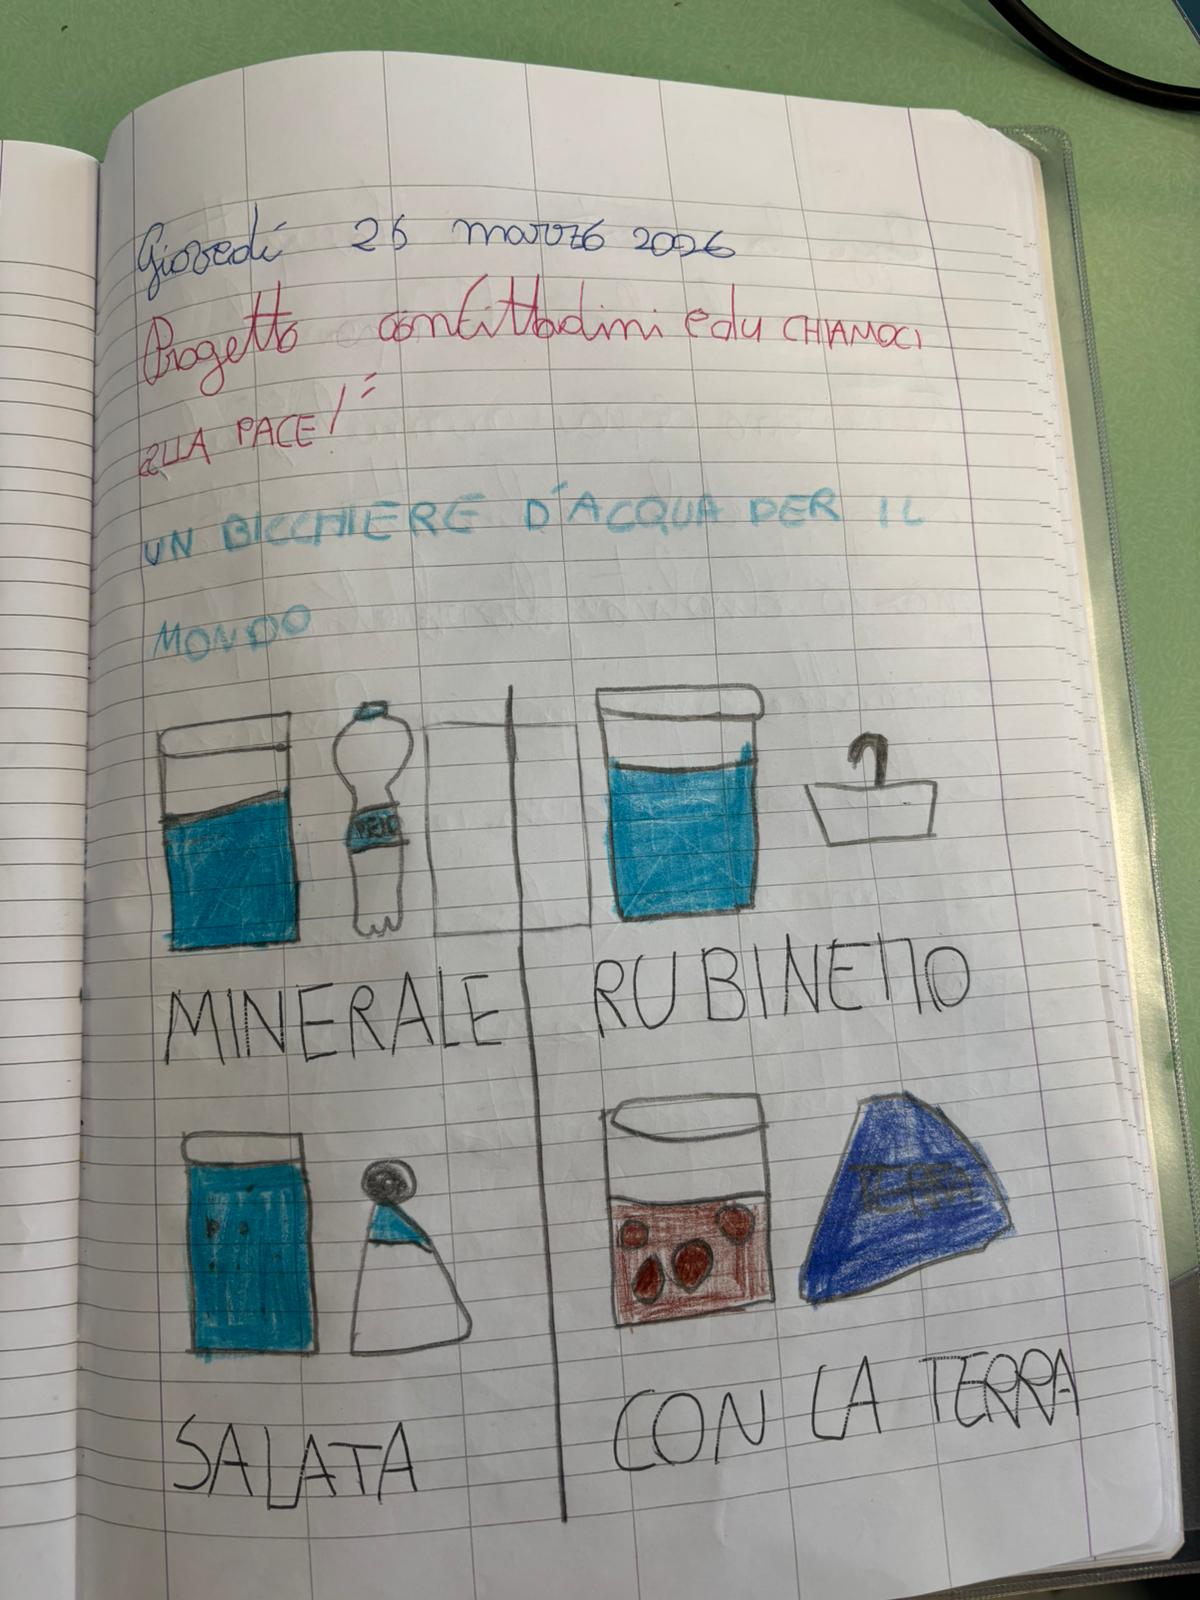 Giovedí 26 marzo 2026
Progetto conCittadini edu CHIAMOCI
aLLA PACE!"
UN BICCHIERE D'ACQUA PER IL
MONDO
MINERALE RUBINETTO
TERRA
SALATA CON LA TERRA